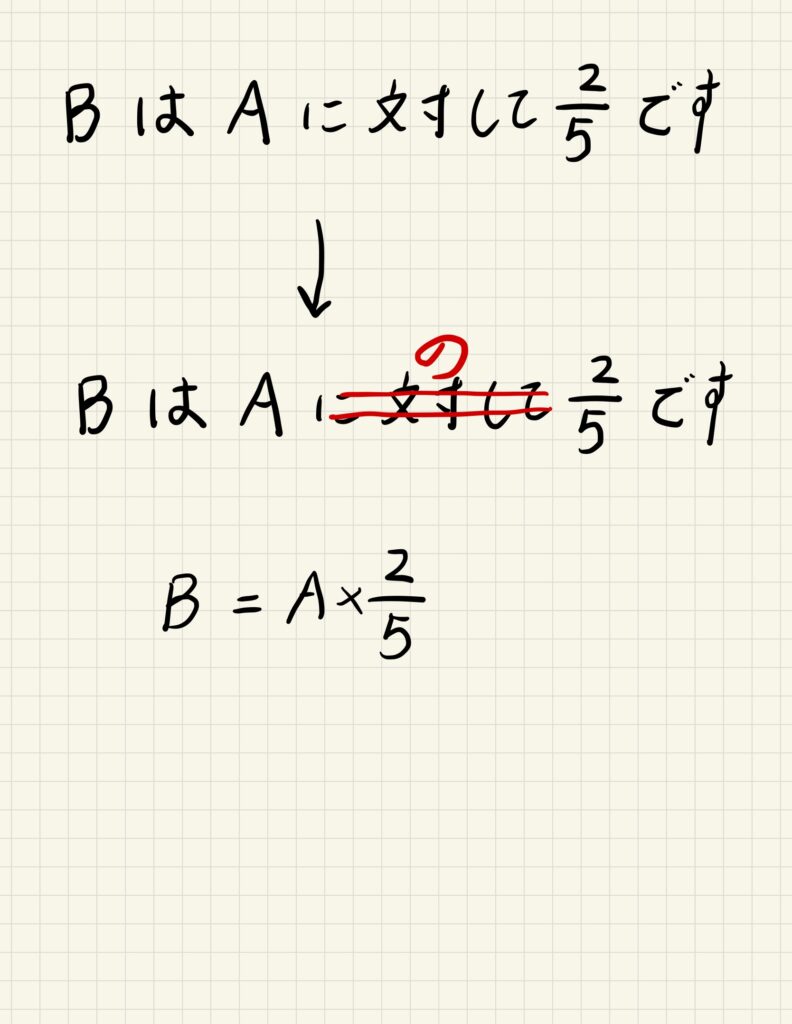 BはAに対して2/5です
↓
BはAに対して2/5です
の
B = A × 2/5